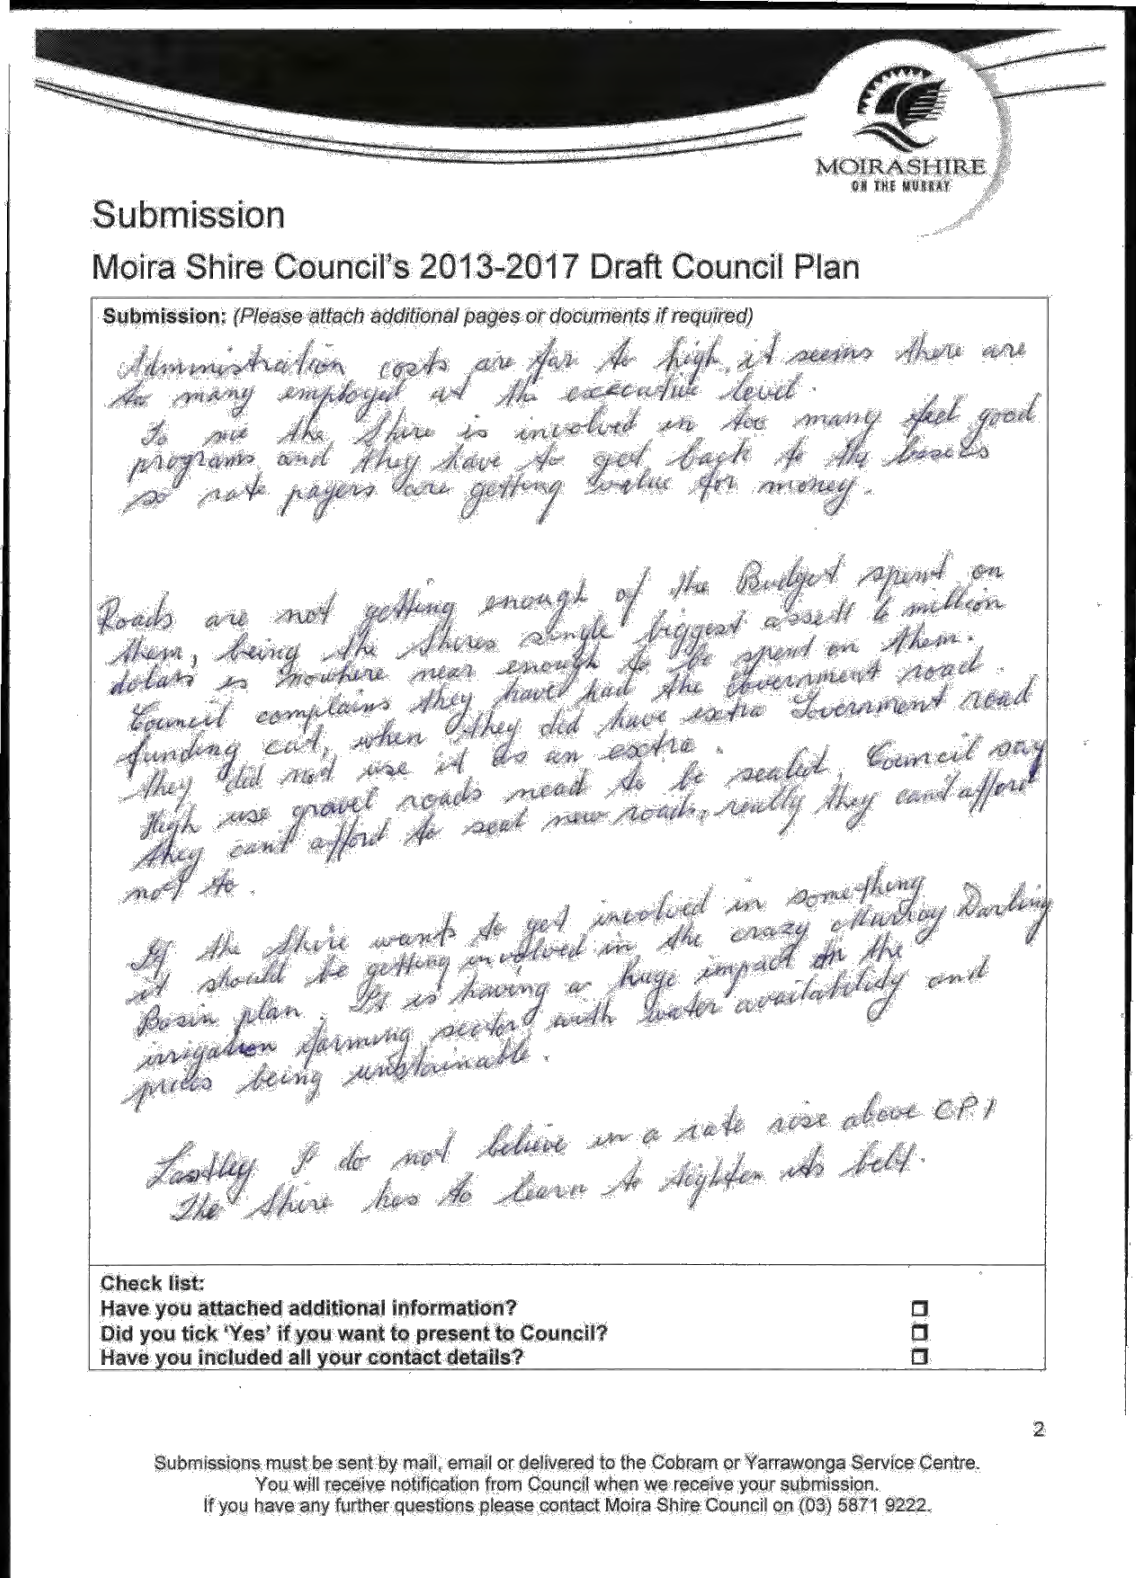 MOIRA SHIRE
ON THE MURRAY
Submission
Moira Shire Council's 2013-2017 Draft Council Plan
Submission: (Please attach additional pages or documents if required)
Administration costs are far to high, it seems there are
to many employed at the execcutive level.
To me the Shire is involved in too many feel good
programs and they have to get back to the basics
so rate payers are getting value for money.
Roads are not getting enough of the Budget spent on
them, being the Shires single biggest assett 6 million
dolars is nowhere near enough to be spent on them.
Council complains they have had the Government road
funding cut, when they did have extra Government road
they did not use it as an extra.
High use gravel roads nead to be sealed, Council say
they cant afford to seal new roads, really they cant afford
not to.
If the Shire wants to get involved in something
it should be getting involved in the crazy Murray Darling
Basin plan. It is having a huge impact on the
irrigation farming sector with water availability and
prices being unstainable.
Lastley I do not believe in a rate rise above CPI
The Shire has to learn to tighten its belt.
Check list:
Have you attached additional information?
Did you tick 'Yes' if you want to present to Council?
Have you included all your contact details?
2
Submissions must be sent by mail, email or delivered to the Cobram or Yarrawonga Service Centre.
You will receive notification from Council when we receive your submission.
If you have any further questions please contact Moira Shire Council on (03) 5871 9222.